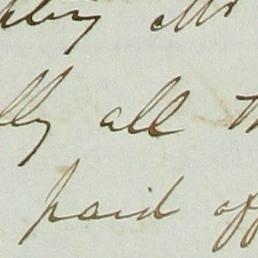 Mr
lly all th
paid off